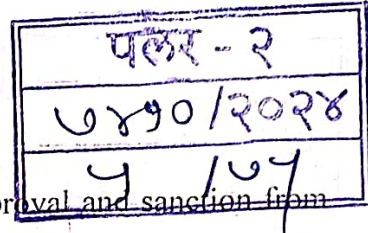 पलर - २
७४१०/२०२४
५ /७५
proval and sanction from